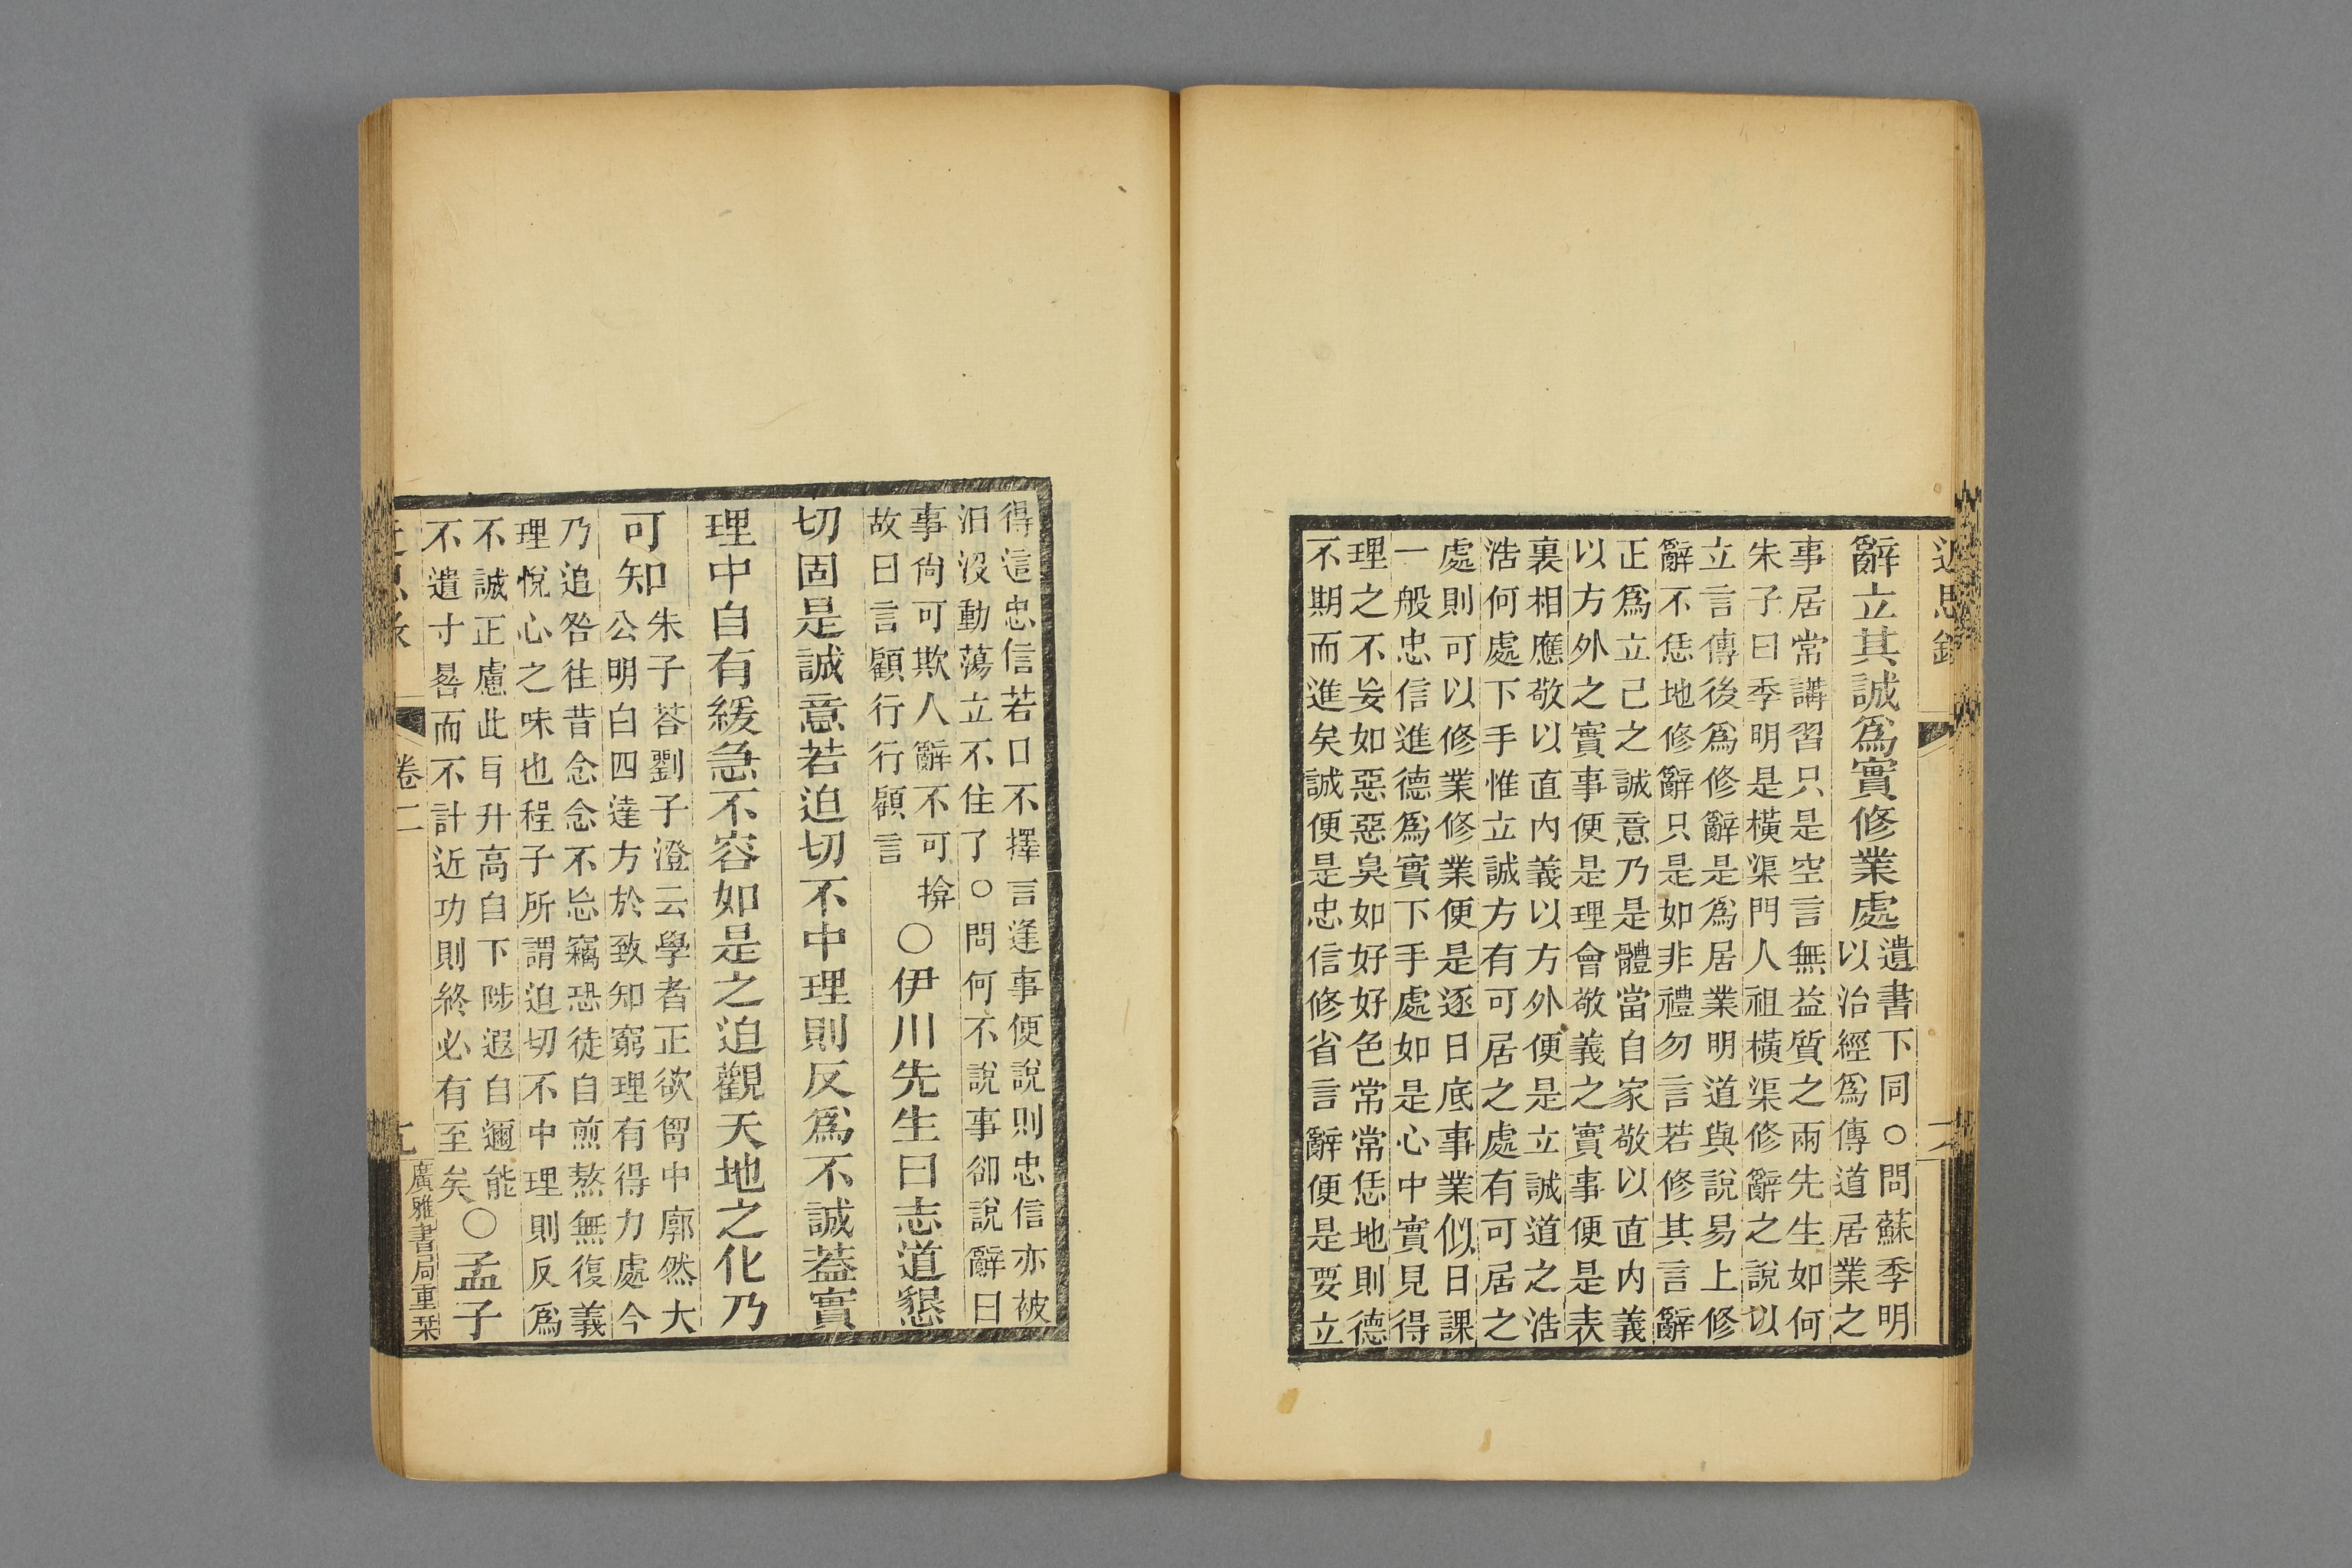 近思錄
辭立其誠爲實修業處
遺書下同○問蘇季明
以治經爲傳道居業之
事居常講習只是空言無益質之兩先生如何
朱子曰季明是橫渠門人祖橫渠修辭之說以
立言傳後爲修辭是爲居業明道與說易上修
辭不恁地修辭只是如非禮勿言若修其言辭
正爲立己之誠意乃是體當自家敬以直內義
以方外之實事便是理會敬義之實事便是表
裏相應敬以直內義以方外便是立誠道之浩
浩何處下手惟立誠方有可居之處有可居之
處則可以修業修業便是逐日底事業似日課
一般忠信進德爲實下手處如是心中實見得
理之不妄如惡惡臭如好好色常常恁地則德
不期而進矣誠便是忠信修省言辭便是要立
得這忠信若口不擇言逢事便說則忠信亦被
汩沒動蕩立不住了○問何不說事卻說辭曰
事尙可欺人辭不可揜
故曰言顧行行顧言
○伊川先生曰志道懇
切固是誠意若迫切不中理則反爲不誠蓋實
理中自有緩急不容如是之迫觀天地之化乃
可知
朱子荅劉子澄云學者正欲胷中廓然大
公明白四達方於致知窮理有得力處今
乃追咎往昔念念不忘竊恐徒自煎熬無復義
理悅心之味也程子所謂迫切不中理則反爲
不誠正慮此耳升高自下陟遐自邇能
不遺寸晷而不計近功則終必有至矣
○孟子
卷二
廣雅書局重栞